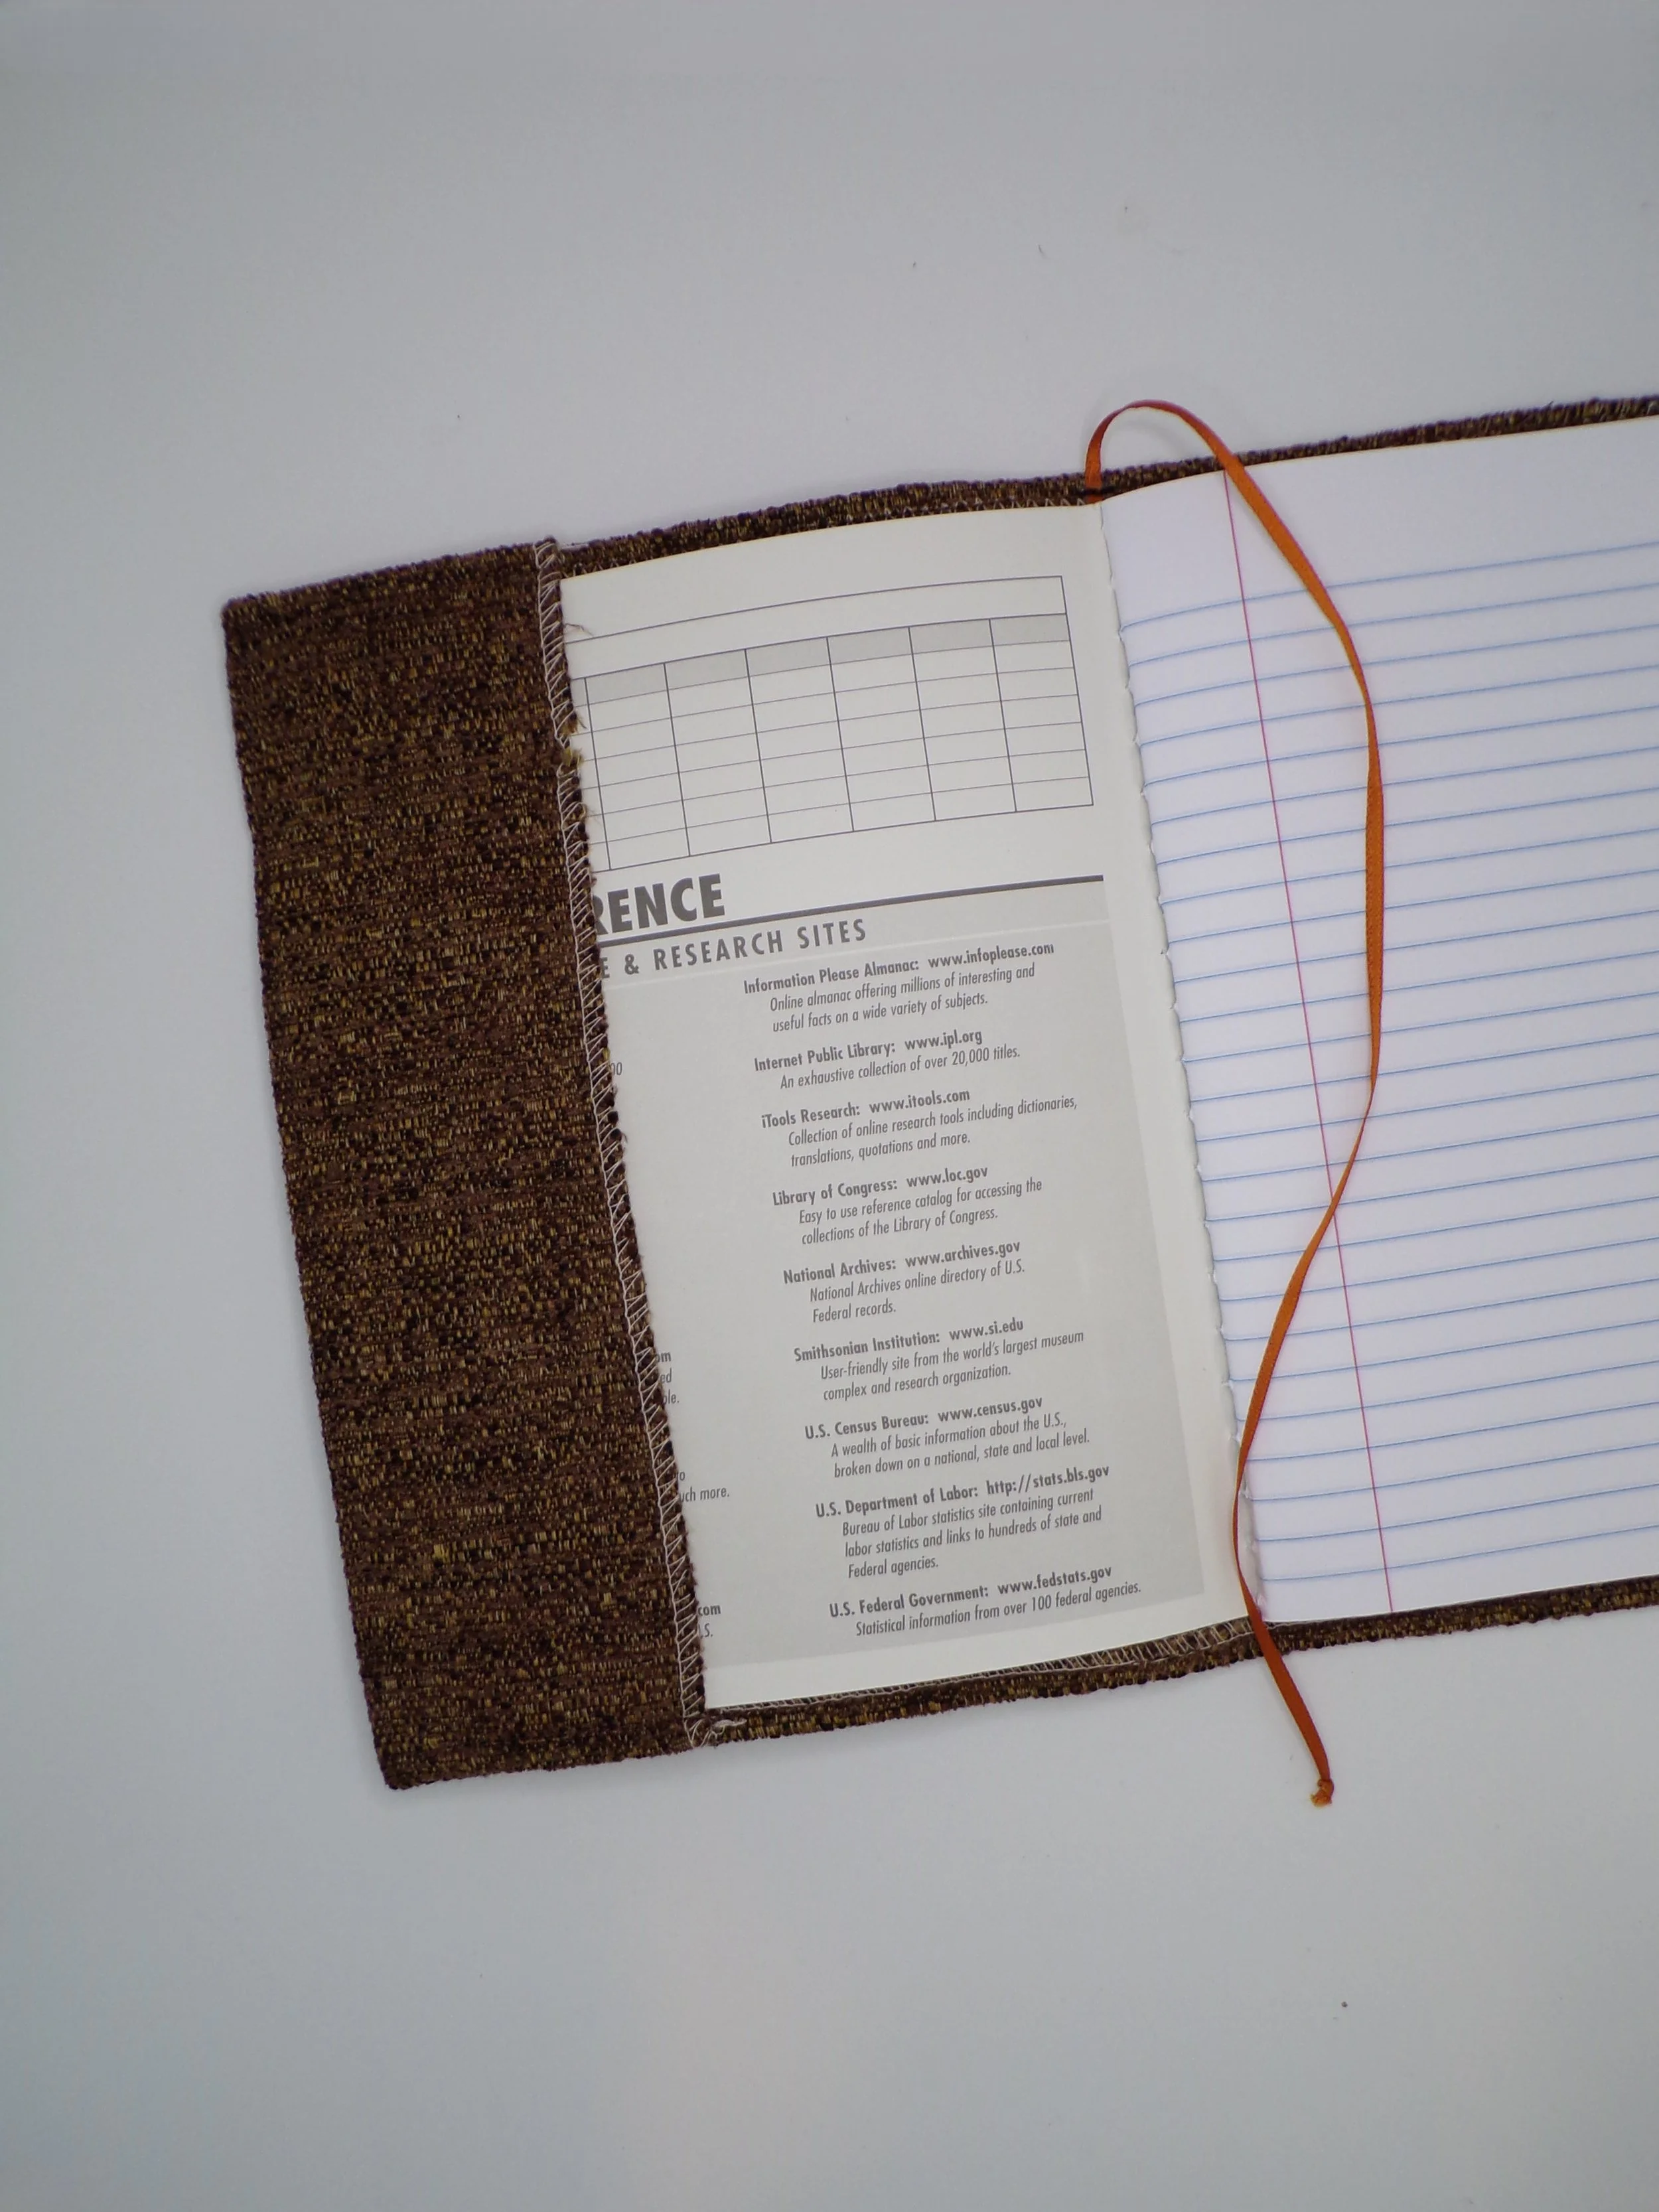 RENCE
E & RESEARCH SITES
Information Please Almanac: www.infoplease.com
Online almanac offering millions of interesting and
useful facts on a wide variety of subjects.
Internet Public Library: www.ipl.org
An exhaustive collection of over 20,000 titles.
iTools Research: www.itools.com
Collection of online research tools including dictionaries,
translations, quotations and more.
Library of Congress: www.loc.gov
Easy to use reference catalog for accessing the
collections of the Library of Congress.
National Archives: www.archives.gov
National Archives online directory of U.S.
Federal records.
Smithsonian Institution: www.si.edu
User-friendly site from the world's largest museum
complex and research organization.
U.S. Census Bureau: www.census.gov
A wealth of basic information about the U.S.,
broken down on a national, state and local level.
U.S. Department of Labor: http://stats.bls.gov
Bureau of Labor statistics site containing current
labor statistics and links to hundreds of state and
Federal agencies.
U.S. Federal Government: www.fedstats.gov
Statistical information from over 100 federal agencies.
00
om
ed
ble.
o
uch more.
com
.S.